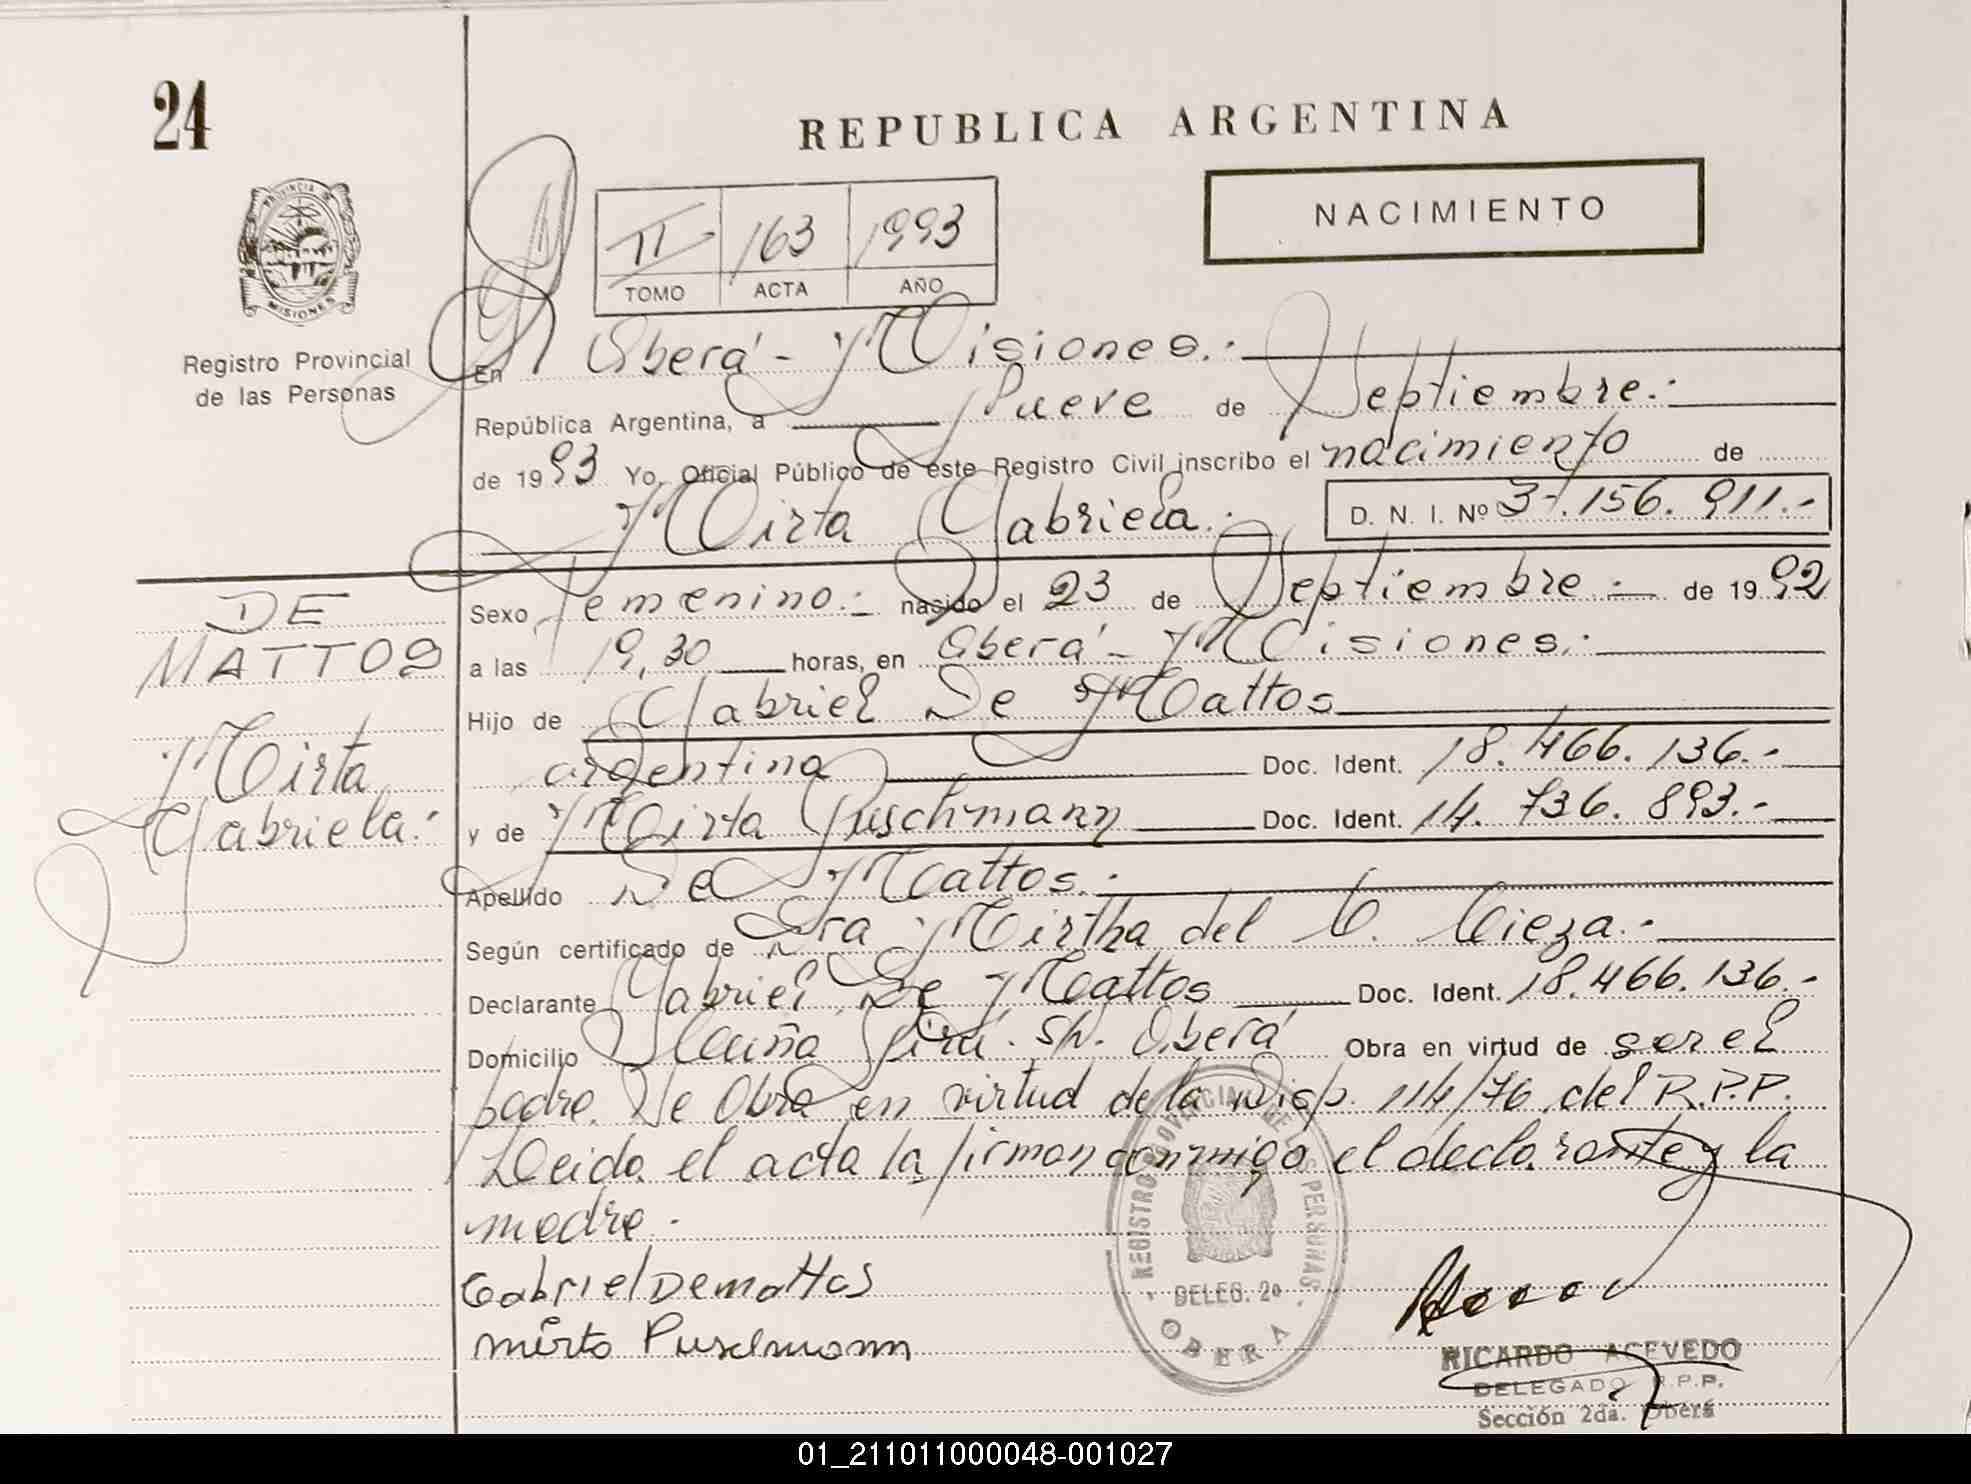 24
REPUBLICA ARGENTINA
NACIMIENTO
II 163 1993
TOMO ACTA AÑO
PROVINCIA DE MISIONES
Registro Provincial
de las Personas
En Oberá - Misiones.-
República Argentina, a Nueve de Septiembre.-
de 1993 Yo, Oficial Público de este Registro Civil inscribo el nacimiento de
Mirta Gabriela.- D. N. I. Nº 37.156.911.-
DE
MATTOS
Mirta
Gabriela.-
Sexo femenino.- nacido el 23 de Septiembre.- de 1992
a las 19,30 horas, en Oberá - Misiones.-
Hijo de Gabriel De Mattos
argentina Doc. Ident. 18.466.136.-
y de Mirta Puschmann Doc. Ident. 14.736.893.-
Apellido De Mattos.-
Según certificado de Dra Mirtha del C. Cieza.-
Declarante Gabriel De Mattos Doc. Ident. 18.466.136.-
Domicilio Pirú. sn. Oberá Obra en virtud de ser el
padre. Se Obra en virtud de la Disp. 114/76 del R.P.P.
Leida el acta la firman conmigo el declarante y la
madre.-
Gabriel De mattos
mirta Puschmann
REGISTRO PROVINCIAL DE LAS PERSONAS
DELEG. 2a
OBERA
RICARDO ACEVEDO
DELEGADO R.P.P.
Sección 2da. Oberá
01_211011000048-001027